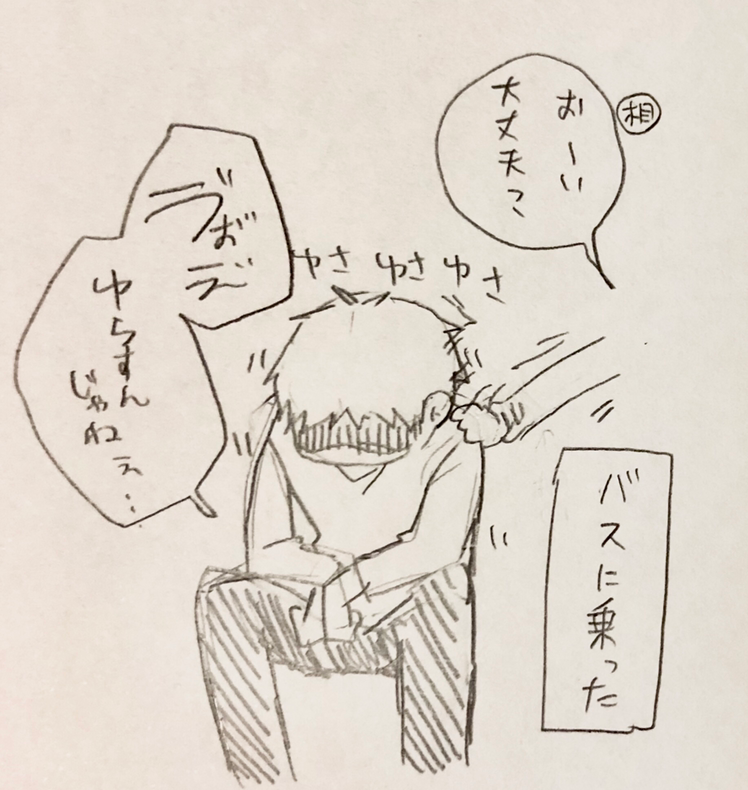 ㊟相
おーい
大丈夫?
バスに乗った
ゆさ ゆさ ゆさ
ゆらすん
じゃねぇ…